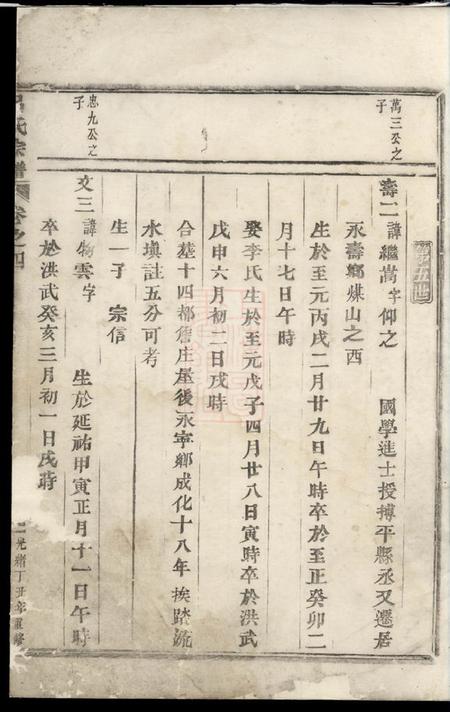 第五世
萬三公之子
壽二 諱繼嵩字仰之 國學進士授搏平縣丞又遷居
永壽鄉煤山之西
生於至元丙戌二月廿九日午時卒於至正癸卯二
月十七日午時
娶李氏生於至元戊子四月廿八日寅時卒於洪武
戊申六月初二日戌時
合墓十四都詹庄屋後永寧鄉成化十八年挨踏流
水塡註五分可考
生一子 宗信
忠九公之子
文三 諱 雲字 生於延祐甲寅正月十一日午時
卒於洪武癸亥三月初一日戌時
氏宗譜 卷之四 光緒丁丑年重修